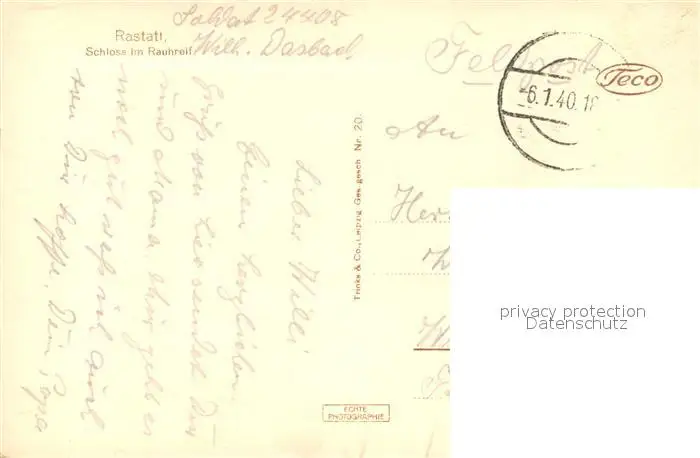 Soldat 24408
Wilh. Dasbach
Rastatt,
Schloss im Rauhreif
Feldpost
Teco
-6.1.40.18
An
Her
Trinks & Co., Leipzig Ges. gesch Nr. 20.
Lieber Willi
Einen herzlichen
Gruß von hier sendet Dir
und Mama. Mir geht es
noch gut was ich auch
von Dir hoffe. Dein Papa
ECHTE
PHOTOGRAPHIE
privacy protection
Datenschutz